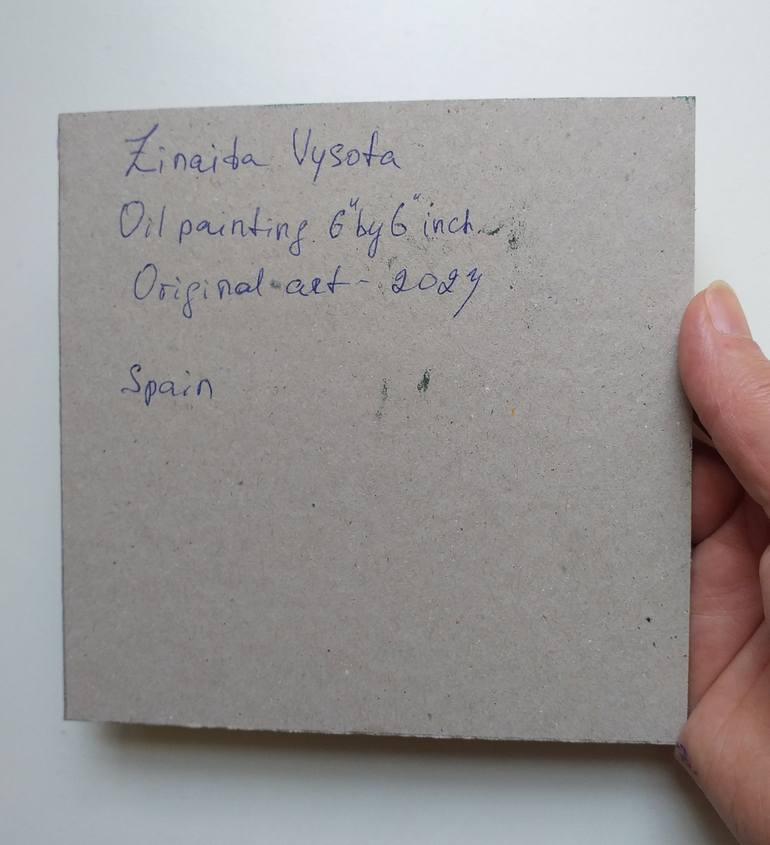 Zinaida Vysota
Oil painting 6" by 6" inch
Original art - 2024
Spain